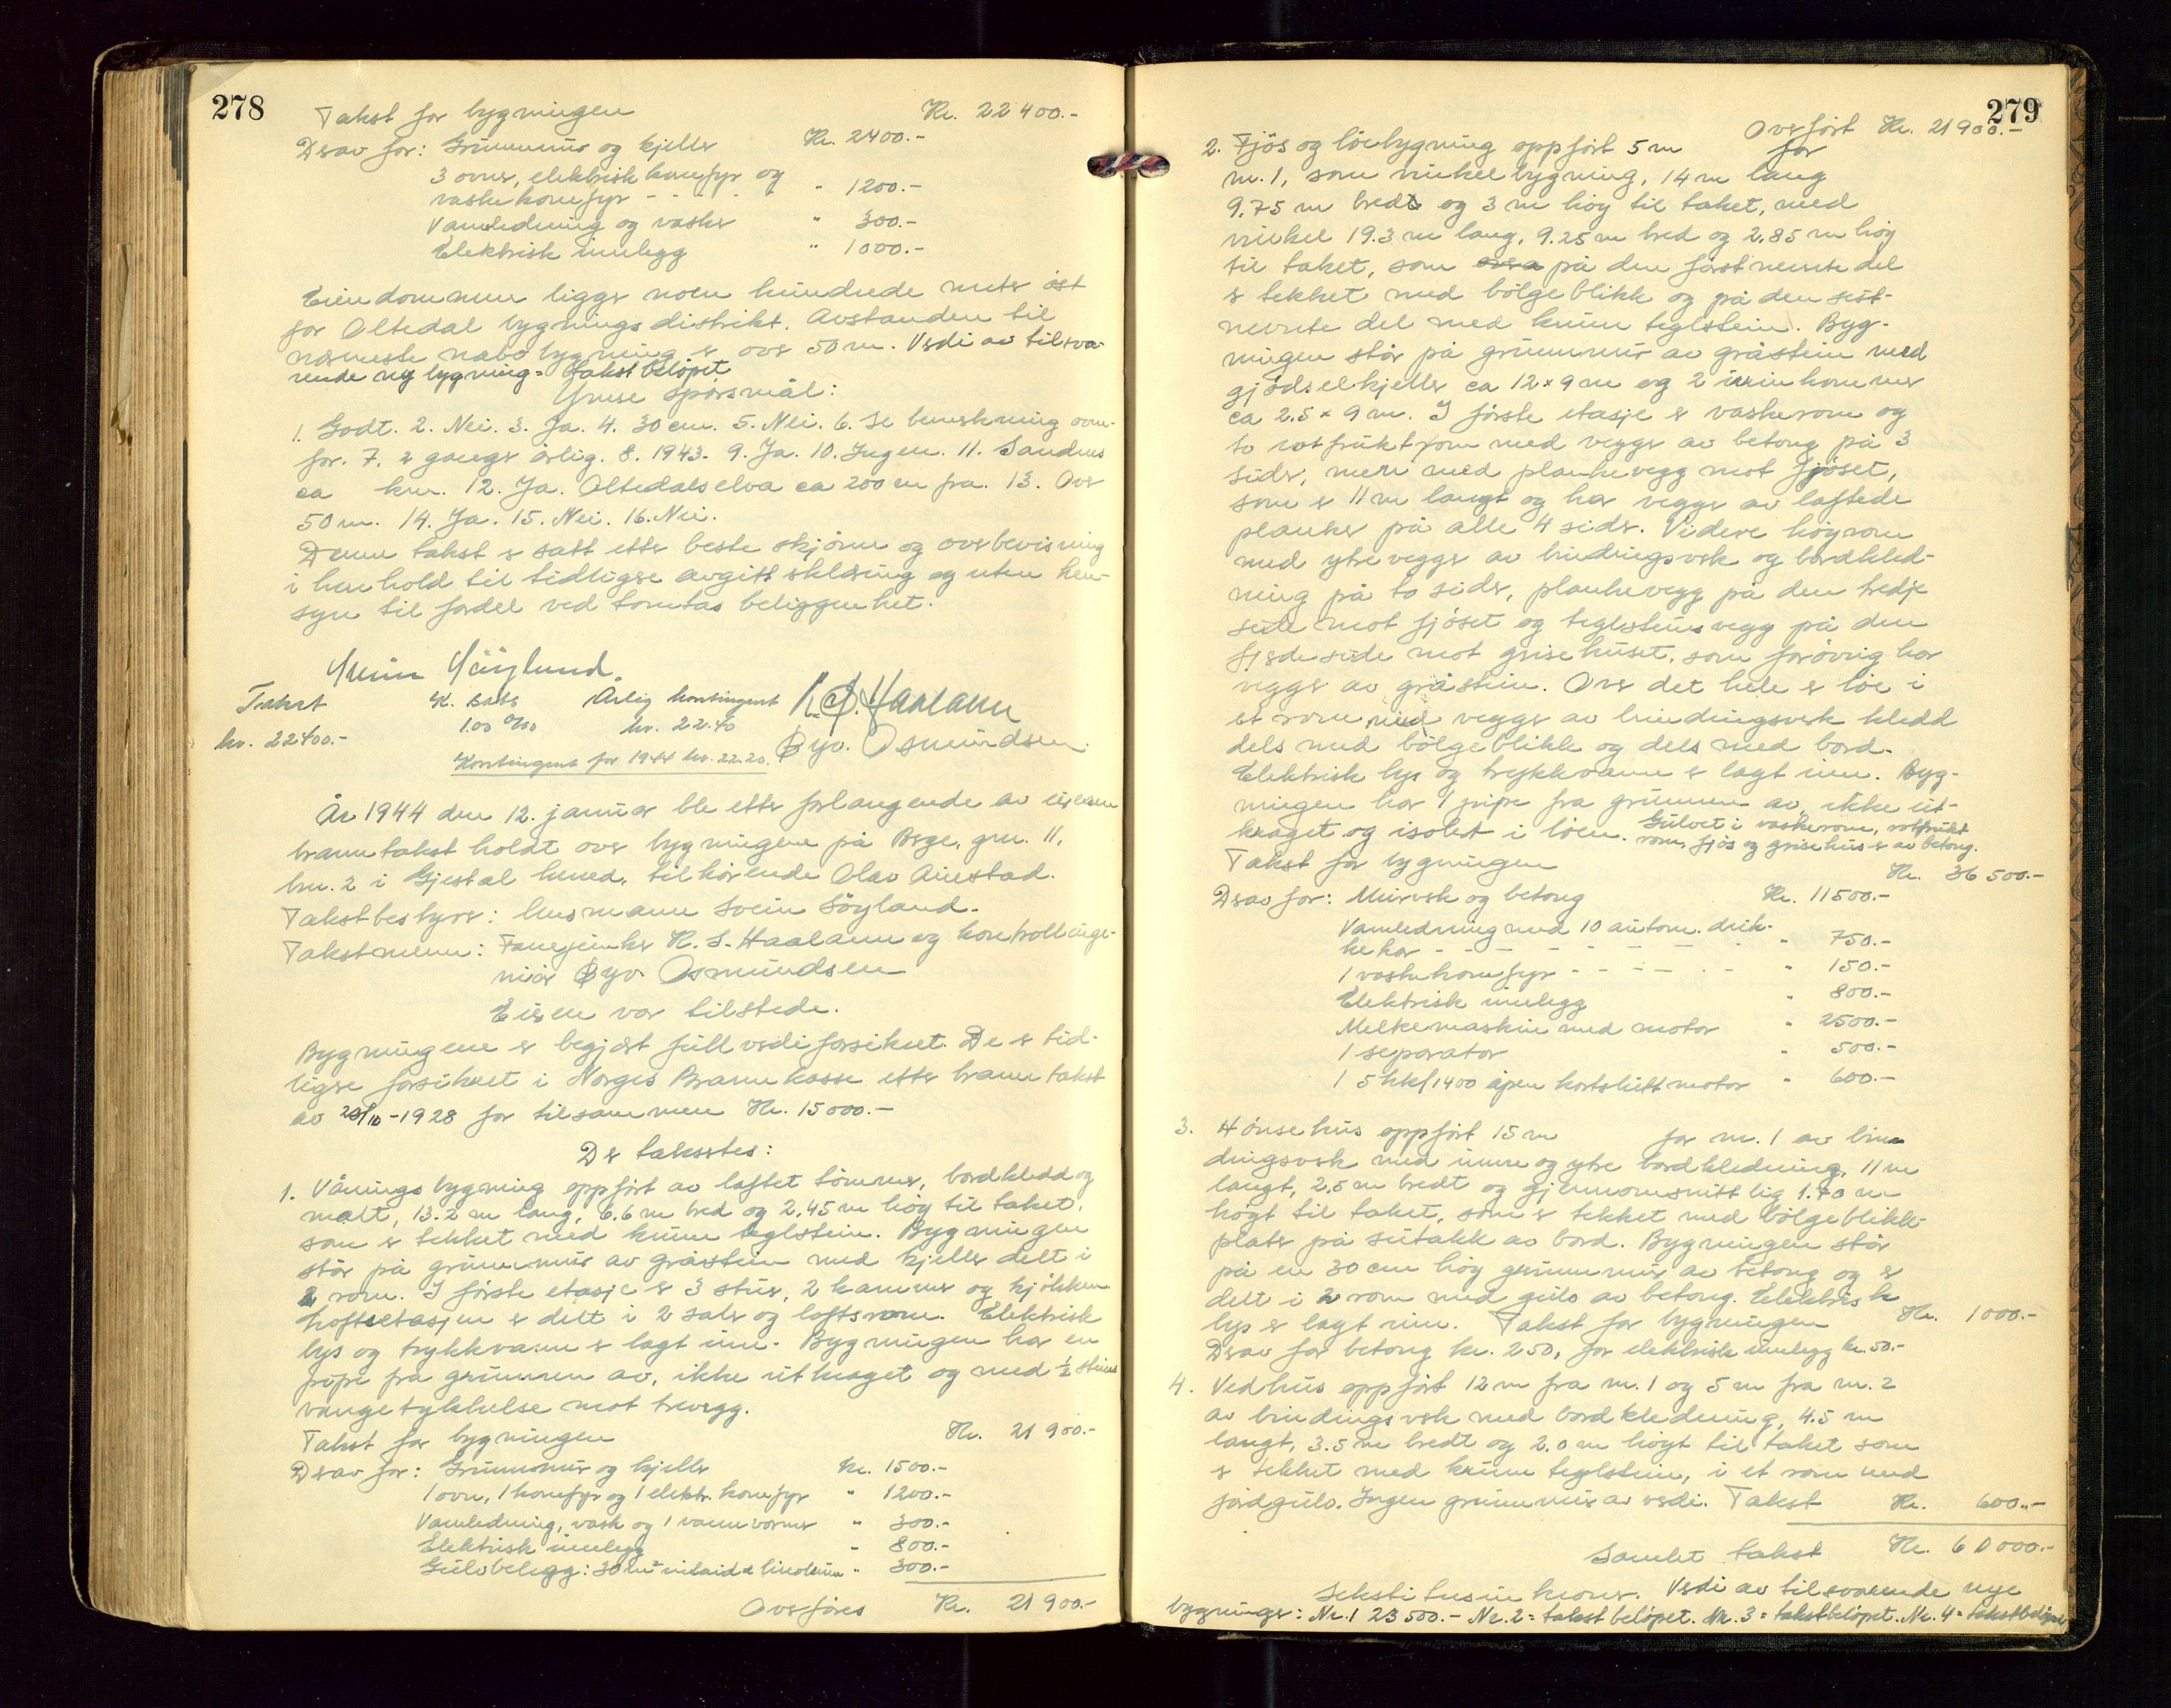 278
Takst for bygningen Kr. 22400.-
Derav for: Grunnmur og kjeller Kr. 2400.-
3 ovner, elektrisk komfyr og
vaskekomfyr - - - - " 1200.-
Vannledning og vasker " 300.-
Elektrisk innlegg " 1000.-
Eiendommen ligger noen hundrede meter øst
for Oltedal bygningsdistrikt. Avstanden til
nærmeste nabobygning er over 50 m. Verdi av tilsva-
rende ny bygning = takstbeløpet
Ymse spørsmål:
1. Godt. 2. Nei. 3. Ja. 4. 30 cm. 5. Nei. 6. Se bemerkning oven-
for. 7. 2 ganger årlig. 8. 1943. 9. Ja. 10. Ingen. 11. Sandnes
ca km. 12. Ja. Oltedalselva ca 200 m fra. 13. Over
50 m. 14. Ja. 15. Nei. 16. Nei.
Denne takst er satt etter beste skjønn og overbevisning
i henhold til tidligere avgitt erklæring og uten hen-
syn til fordel ved tomtas beliggenhet.
Svein Söyland.
Takst Kl. sats Årlig kontingent K. S. Haaland
kr. 22400.- 1.00 ‰ kr. 22.40
Kontingent for 1944 kr. 22.20. Øyv. Osmundsen.
År 1944 den 12. januar ble etter forlangende av eieren
branntakst holdt over bygningene på Berge, gnr. 11,
bnr. 2 i Gjestal herred, tilhørende Olav Auestad.
Takstbestyrer: lensmann Svein Söyland.
Takstmenn: Fanejunker K. S. Haaland og kontrollinge-
niør Øyv. Osmundsen
Eieren var tilstede.
Bygningene er begjært fullverdiforsikret. De er tid-
ligere forsikret i Norges Brannkasse etter branntakst
av 23/10-1928 for tilsammen Kr. 15000.-
Der takstes:
1. Våningsbygning oppført av laftet tømmer, bordkledd og
malt, 13.2 m lang, 6.6 m bred og 2.45 m høg til taket,
som er tekket med krum teglstein. Bygningen
står på grunnmur av gråstein med kjeller delt i
2 rom. I første etasje er 3 stuer, 2 kammer og kjøkken
Loftsetasjen er delt i 2 saler og loftsrom. Elektrisk
lys og trykkvann er lagt inn. Bygningen har en
pipe fra grunnen av, ikke utkraget og med ½ steins
vangetykkelse mot trevegg.
Takst for bygningen Kr. 21 900.-
Derav for: Grunnmur og kjeller kr. 1500.-
1 ovn, 1 komfyr og 1 elektr. komfyr " 1200.-
Vannledning, vask og 1 vannvarmer " 300.-
Elektrisk innlegg " 800.-
Gulvbelegg: 30 m² inlaid linoleum " 300.-
Overføres Kr. 21 900.-
279
Overført Kr. 21900.-
2. Fjös og löebygning oppført 5 m for
nr. 1, som vinkelbygning, 14 m lang
9.75 m bred og 3 m høy til taket, med
vinkel 19.3 m lang, 9.25 m bred og 2.85 m høy
til taket, som på den førstnevnte del
er tekket med bølgeblikk og på den sist-
nevnte del med krum teglstein. Byg-
ningen står på grunnmur av gråstein med
gjødselkjeller ca 12 x 9 m og 2 urinkommer
ca 2.5 x 9 m. I første etasje er vaskerom og
to rotfruktrom med vegger av betong på 3
sider, men med plankevegg mot fjøset,
som er 11 m langt og har vegger av laftede
planker på alle 4 sider. Videre høyrom
med ytrevegger av bindingsverk og bordkled-
ning på to sider, plankevegg på den tredje
side mot fjøset og teglsteinsvegg på den
fjerde side mot grisehuset, som forøvrig har
vegger av gråstein. Over det hele er løe i
et rom med vegger av bindingsverk kledd
dels med bølgeblikk og dels med bord.
Elektrisk lys og trykkvann er lagt inn. Byg-
ningen har 1 pipe fra grunnen av, ikke ut-
kraget og isolert i løen. Gulvet i vaskerom, rotfrukt
rom, fjøs og grisehus er av betong.
Takst for bygningen Kr. 36 500.-
Derav for: Murverk og betong Kr. 11500.-
Vannledning med 10 autom. drik-
kekar - - - - - - - " 750.-
1 vaskekomfyr - - - - - - " 150.-
Elektrisk innlegg " 800.-
Melkemaskin med motor " 2500.-
1 separator " 500.-
1 5 hk/1400 åpen kortslutt motor " 600.-
3. Hönsehus oppført 15 m for nr. 1 av bin
dingsverk med innre og ytre bordkledning, 11 m
langt, 2.5 m bredt og gjennomsnittlig 1.70 m
høgt til taket, som er tekket med bølgeblikk-
plater på sutakk av bord. Bygningen står
på en 30 cm høy grunnmur av betong og er
delt i 2 rom med gulv av betong. Elektrisk
lys er lagt inn. Takst for bygningen Kr. 1000.-
Derav for betong kr. 250, for elektrisk innlegg kr. 50.-
4. Vedhus oppført 12 m fra nr. 1 og 5 m fra nr. 2
av bindingsverk med bordkledning, 4.5 m
langt, 3.5 m bredt og 2.0 m høgt til taket som
er tekket med krum teglstein, i et rom med
jordgulv. Ingen grunnmur av verdi. Takst Kr. 600.-
Samlet takst Kr. 60000.-
Seksti tusin kroner. Verdi av tilsvarende nye
bygninger: Nr. 1 23500.- Nr. 2 = takstbeløpet. Nr. 3 = takstbeløpet. Nr. 4 = takstbeløpet